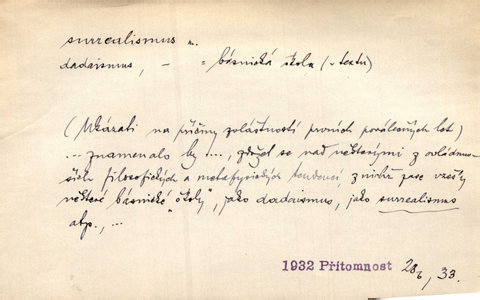 surrealismus m.
dadaismus, - = básnická škola (v textu)
(Ukázati na příčiny zvláštností prvních poválečných let)
... znamenalo by ..., zdržet se nad některými z ovládnu-
ších filosofických a metafysických tendencí, z nichž zase vzešly
některé básnické "školy", jako dadaismus, jako surrealismus
atp., ...
1932 Přítomnost 28/6, 33.